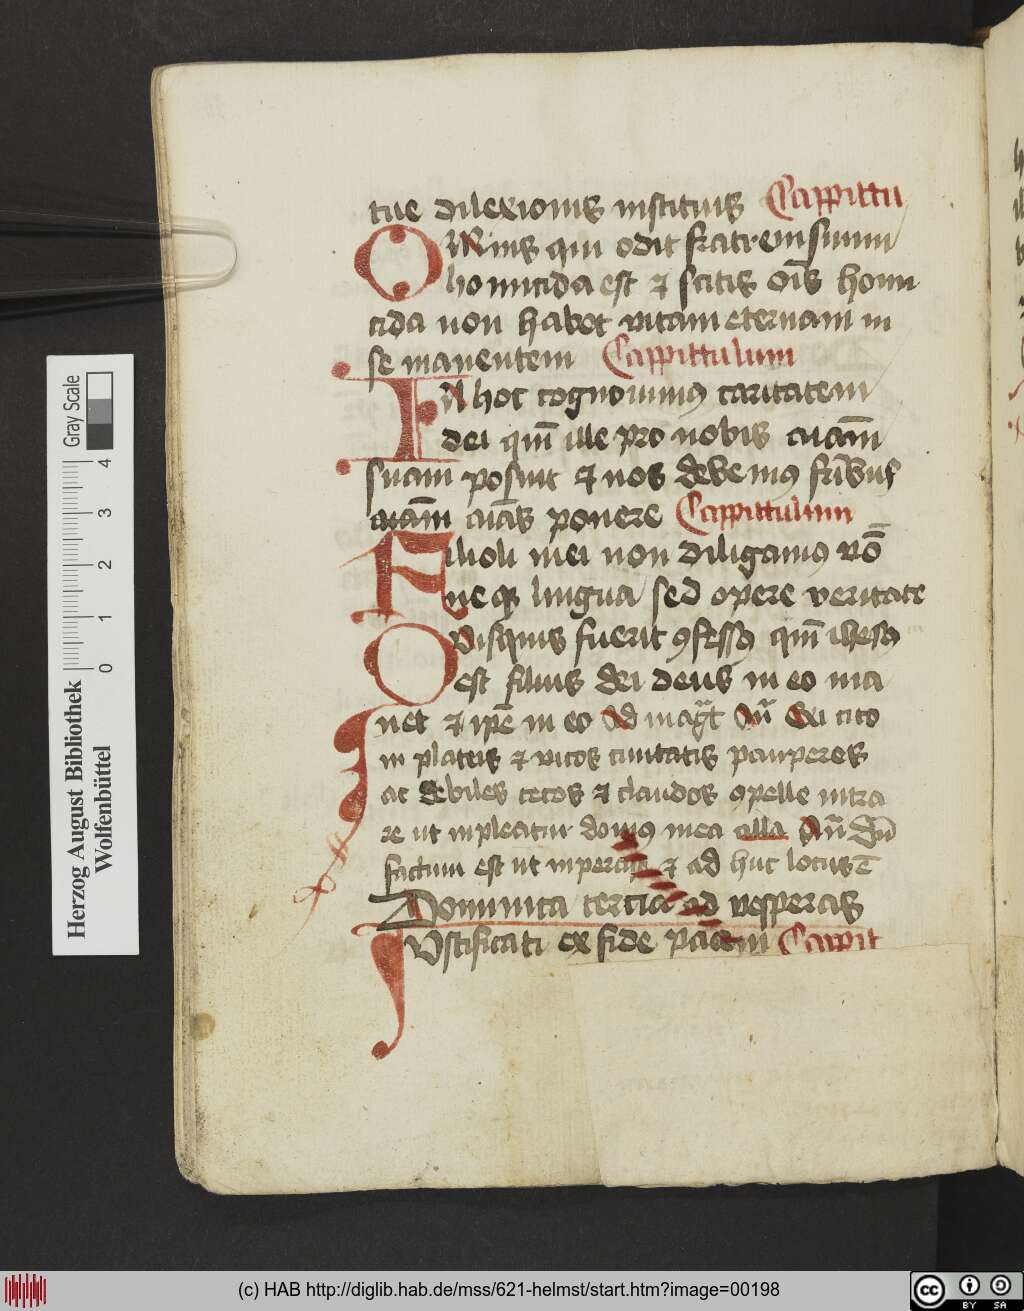 tue dilexionis instituis Cappittu
OMnis qui odit fratrem suum
homicida est et scitis oīs homi
cida non habet vitam eternam in
se manentem Cappittulum
IN hoc cognovimꝰ caritatem
dei qm̄ ille pro nobis aīam
suam posuit et nos debemꝰ frībus
aīas ponere Cappittulum
Filioli mei non diligamꝰ vō
neqꝫ lingua sed opere veritate
QVisquis fuerit ꝯfessꝰ qm̄ ihesꝰ
est filius dei deus in eo ma
net et ipē in eo Ad mag̅t Añ Exi cito
in plateis et vicos civitatis pauperes
ac debiles cecos et claudos ꝯpelle intra
re ut inpleatur domꝰ mea alla Añ Dn̄e
factum est ut inperasti et ad huc locus ē
Dominica tercia ad vesperas
IVstificati ex fide pacem Capit
Herzog August Bibliothek
Wolfenbüttel
0 1 2 3 4
Gray Scale
(c) HAB http://diglib.hab.de/mss/621-helmst/start.htm?image=00198
cc BY SA